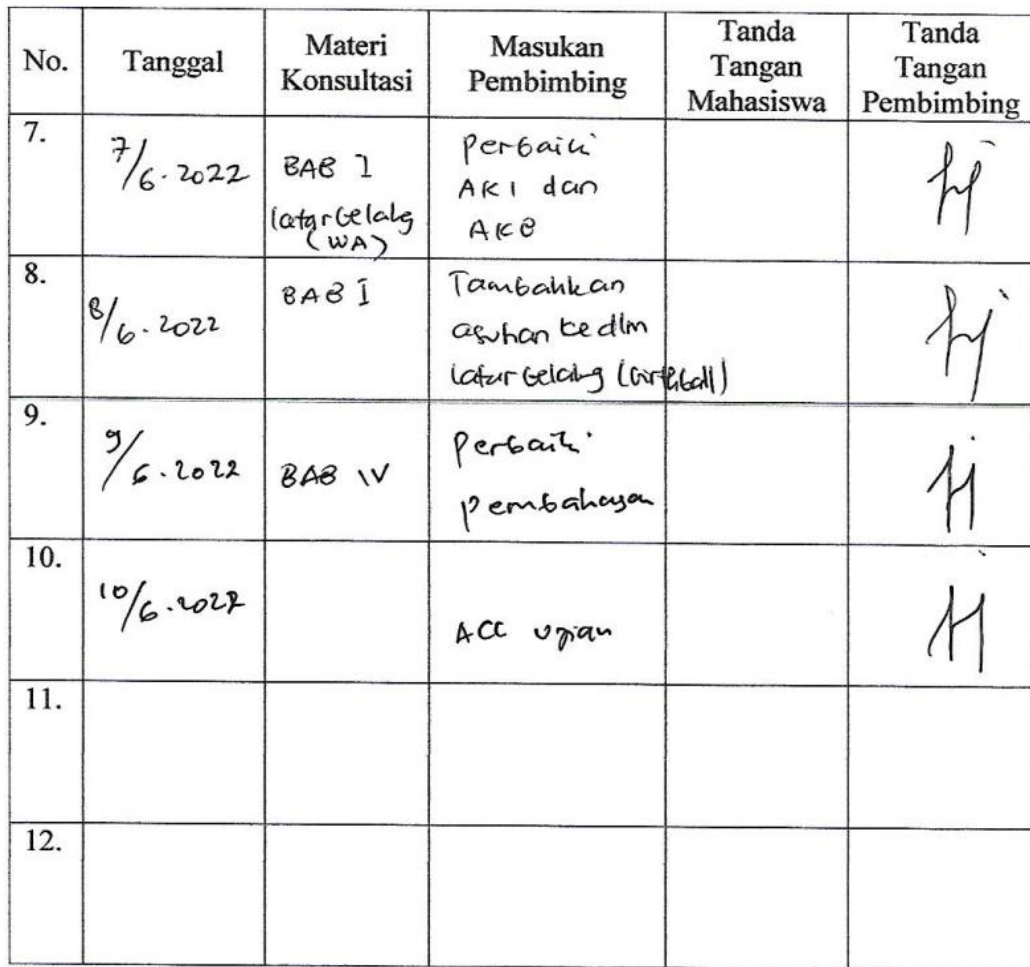 No. Tanggal Materi Konsultasi Masukan Pembimbing Tanda Tangan Mahasiswa Tanda Tangan Pembimbing
7. 7/6.2022 BAB I latar belakg (WA) Perbaiki AKI dan AKB
8. 8/6.2022 BAB I Tambahkan asuhan ke dlm latar belakg (birthball)
9. 9/6.2022 BAB IV Perbaiki pembahasan
10. 10/6.2022 ACC ujian
11.
12.